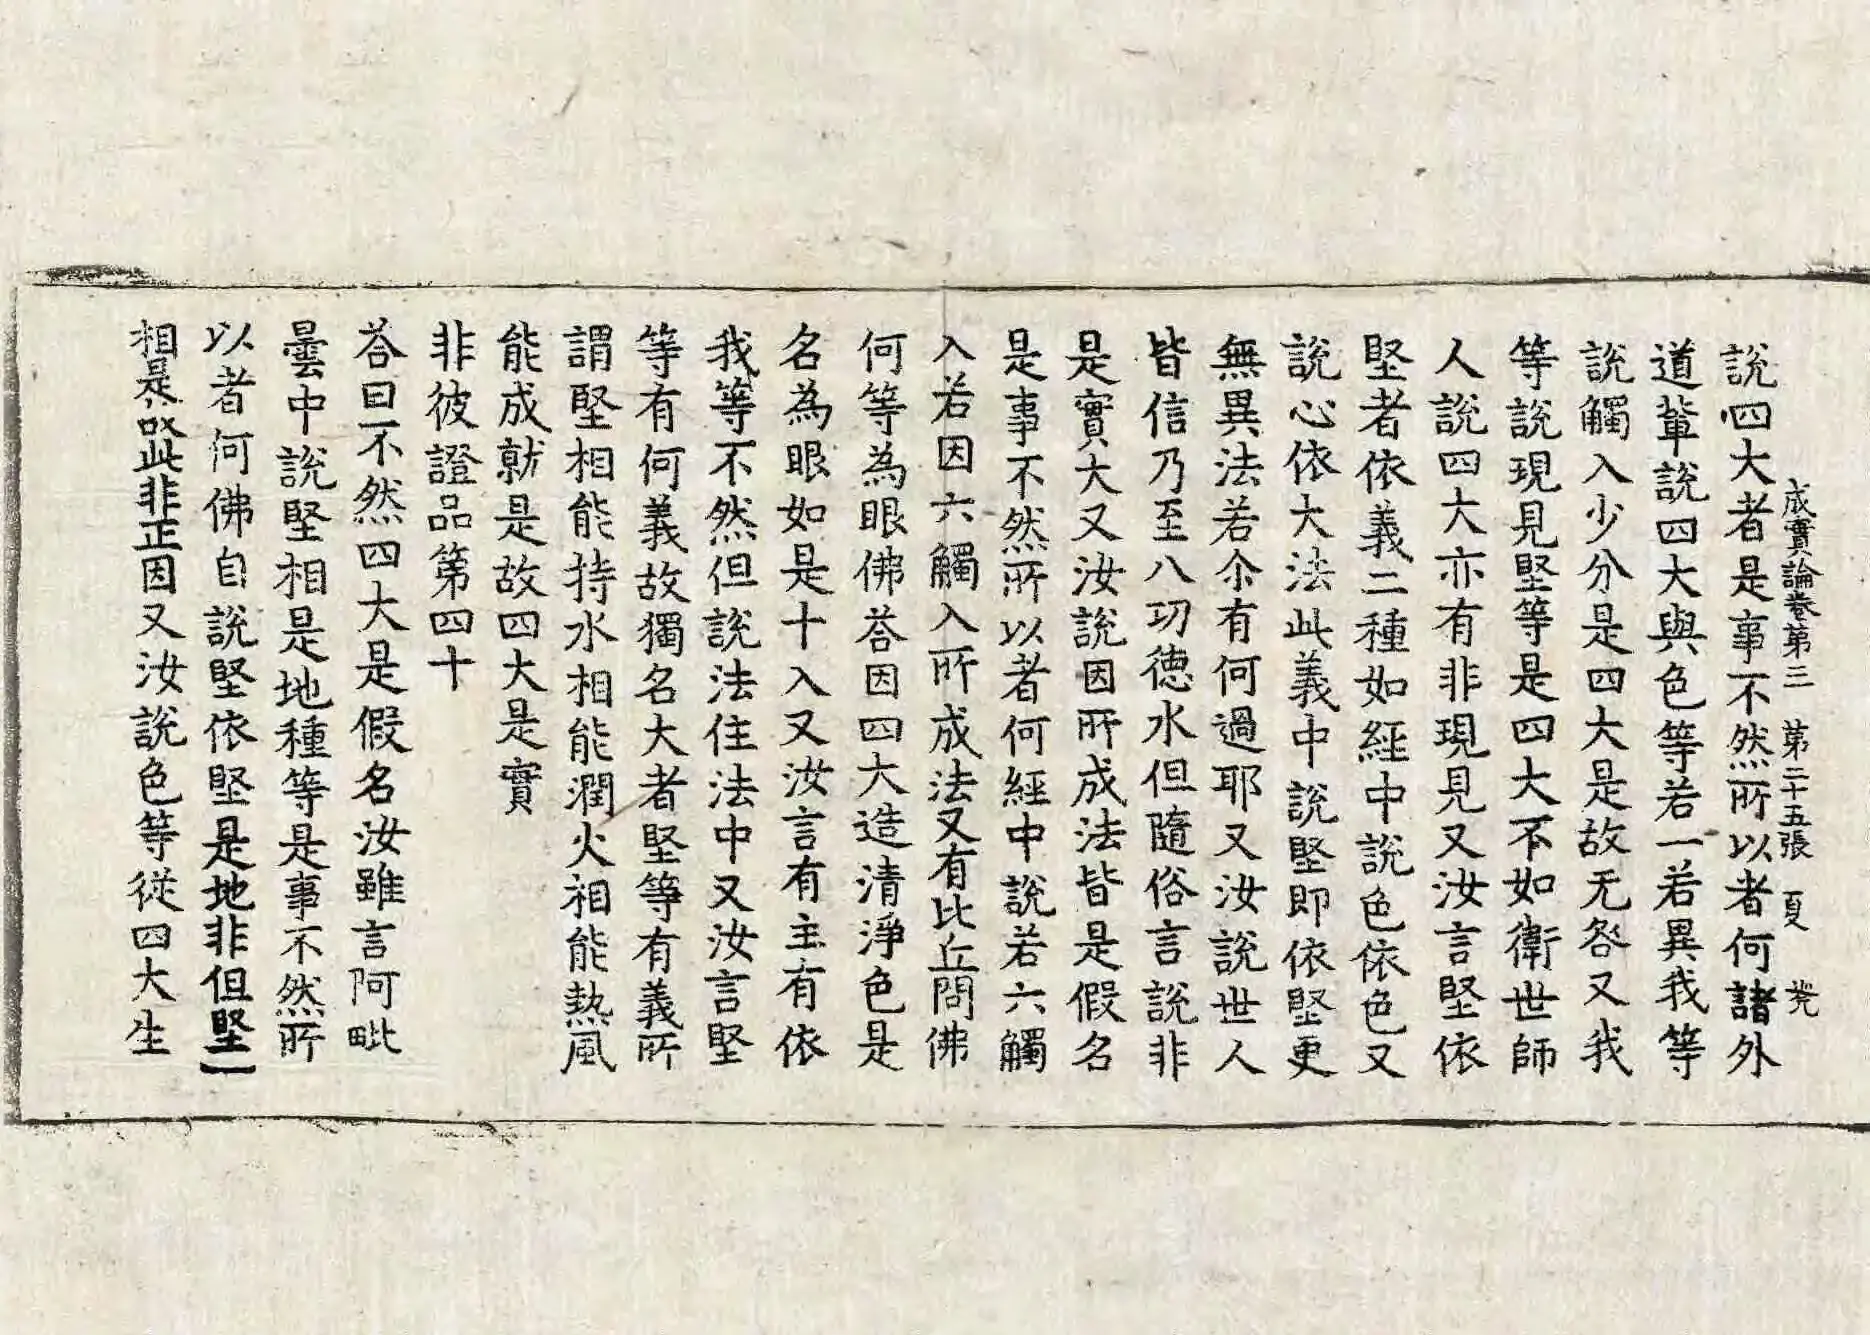 成實論卷第三 第二十五張 夏
說四大者是事不然所以者何諸外
道軰說四大與色等若一若異我等
說觸入少分是四大是故无咎又我
等說現見堅等是四大不如衛世師
人說四大亦有非現見又汝言堅依
堅者依義二種如經中說色依色又
說心依大法此義中說堅即依堅更
無異法若尒有何過耶又汝說世人
皆信乃至八功德水但隨俗言說非
是實大又汝說因所成法皆是假名
是事不然所以者何經中說若六觸
入若因六觸入所成法又有比丘問佛
何等為眼佛荅因四大造清淨色是
名為眼如是十入又汝言有主有依
我等不然但說法住法中又汝言堅
等有何義故獨名大者堅等有義所
謂堅相能持水相能潤火相能熱風
能成就是故四大是實
非彼證品第四十
荅曰不然四大是假名汝雖言阿毗
曇中說堅相是地種等是事不然所
以者何佛自說堅依堅是地非但堅
相是故此非正因又汝說色等從四大生